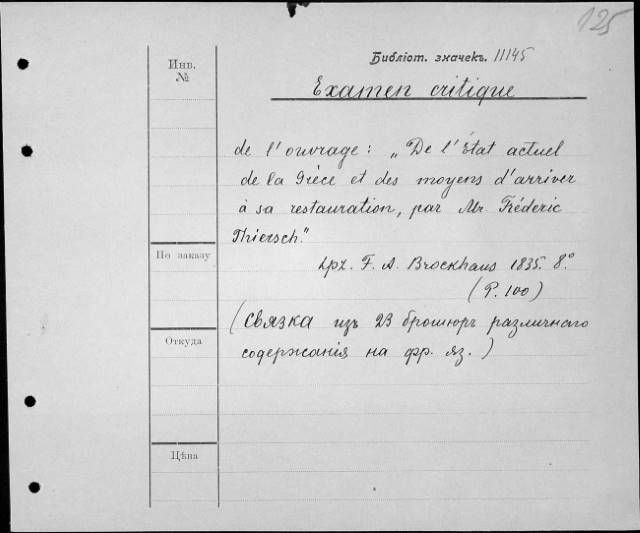 125
Инв.
№
Библіот. значекъ. 11145
Examen critique
de l'ouvrage: „De l'État actuel
de la Grèce et des moyens d'arriver
à sa restauration, par Mr. Fréderic
Thiersch."
Lpz. F. A. Brockhaus 1835. 8°.
(P. 100)
По заказу
(Связка изъ 23 брошюръ различнаго
содержанія на фр. яз.)
Откуда
Цѣна